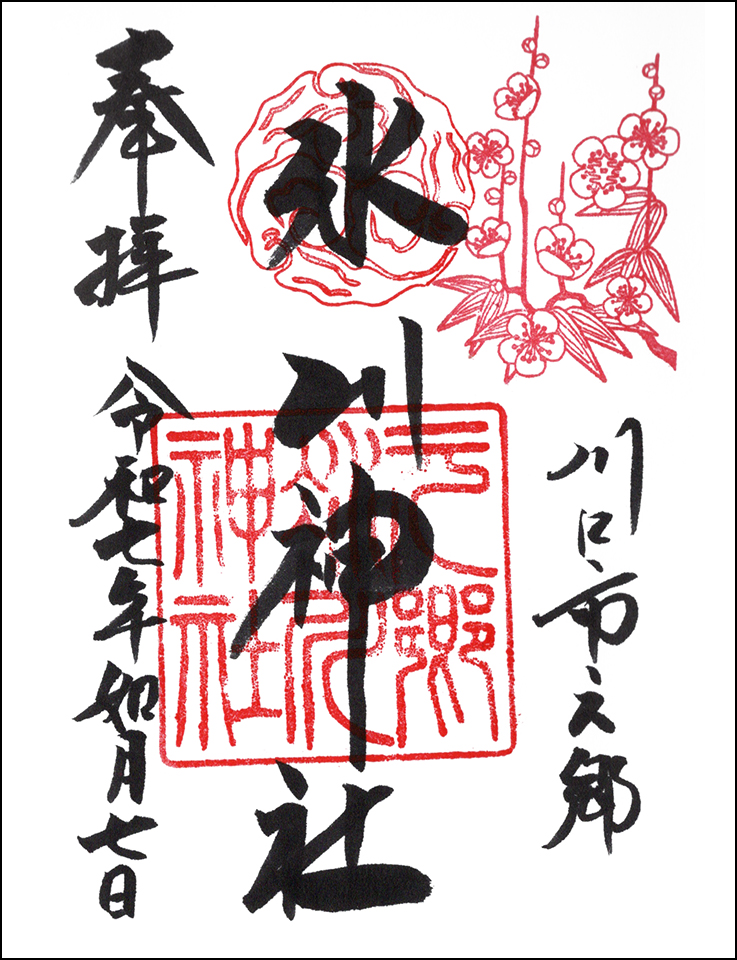 川口市元郷
氷川神社
元郷
氷川
神社
奉拝
令和七年如月七日